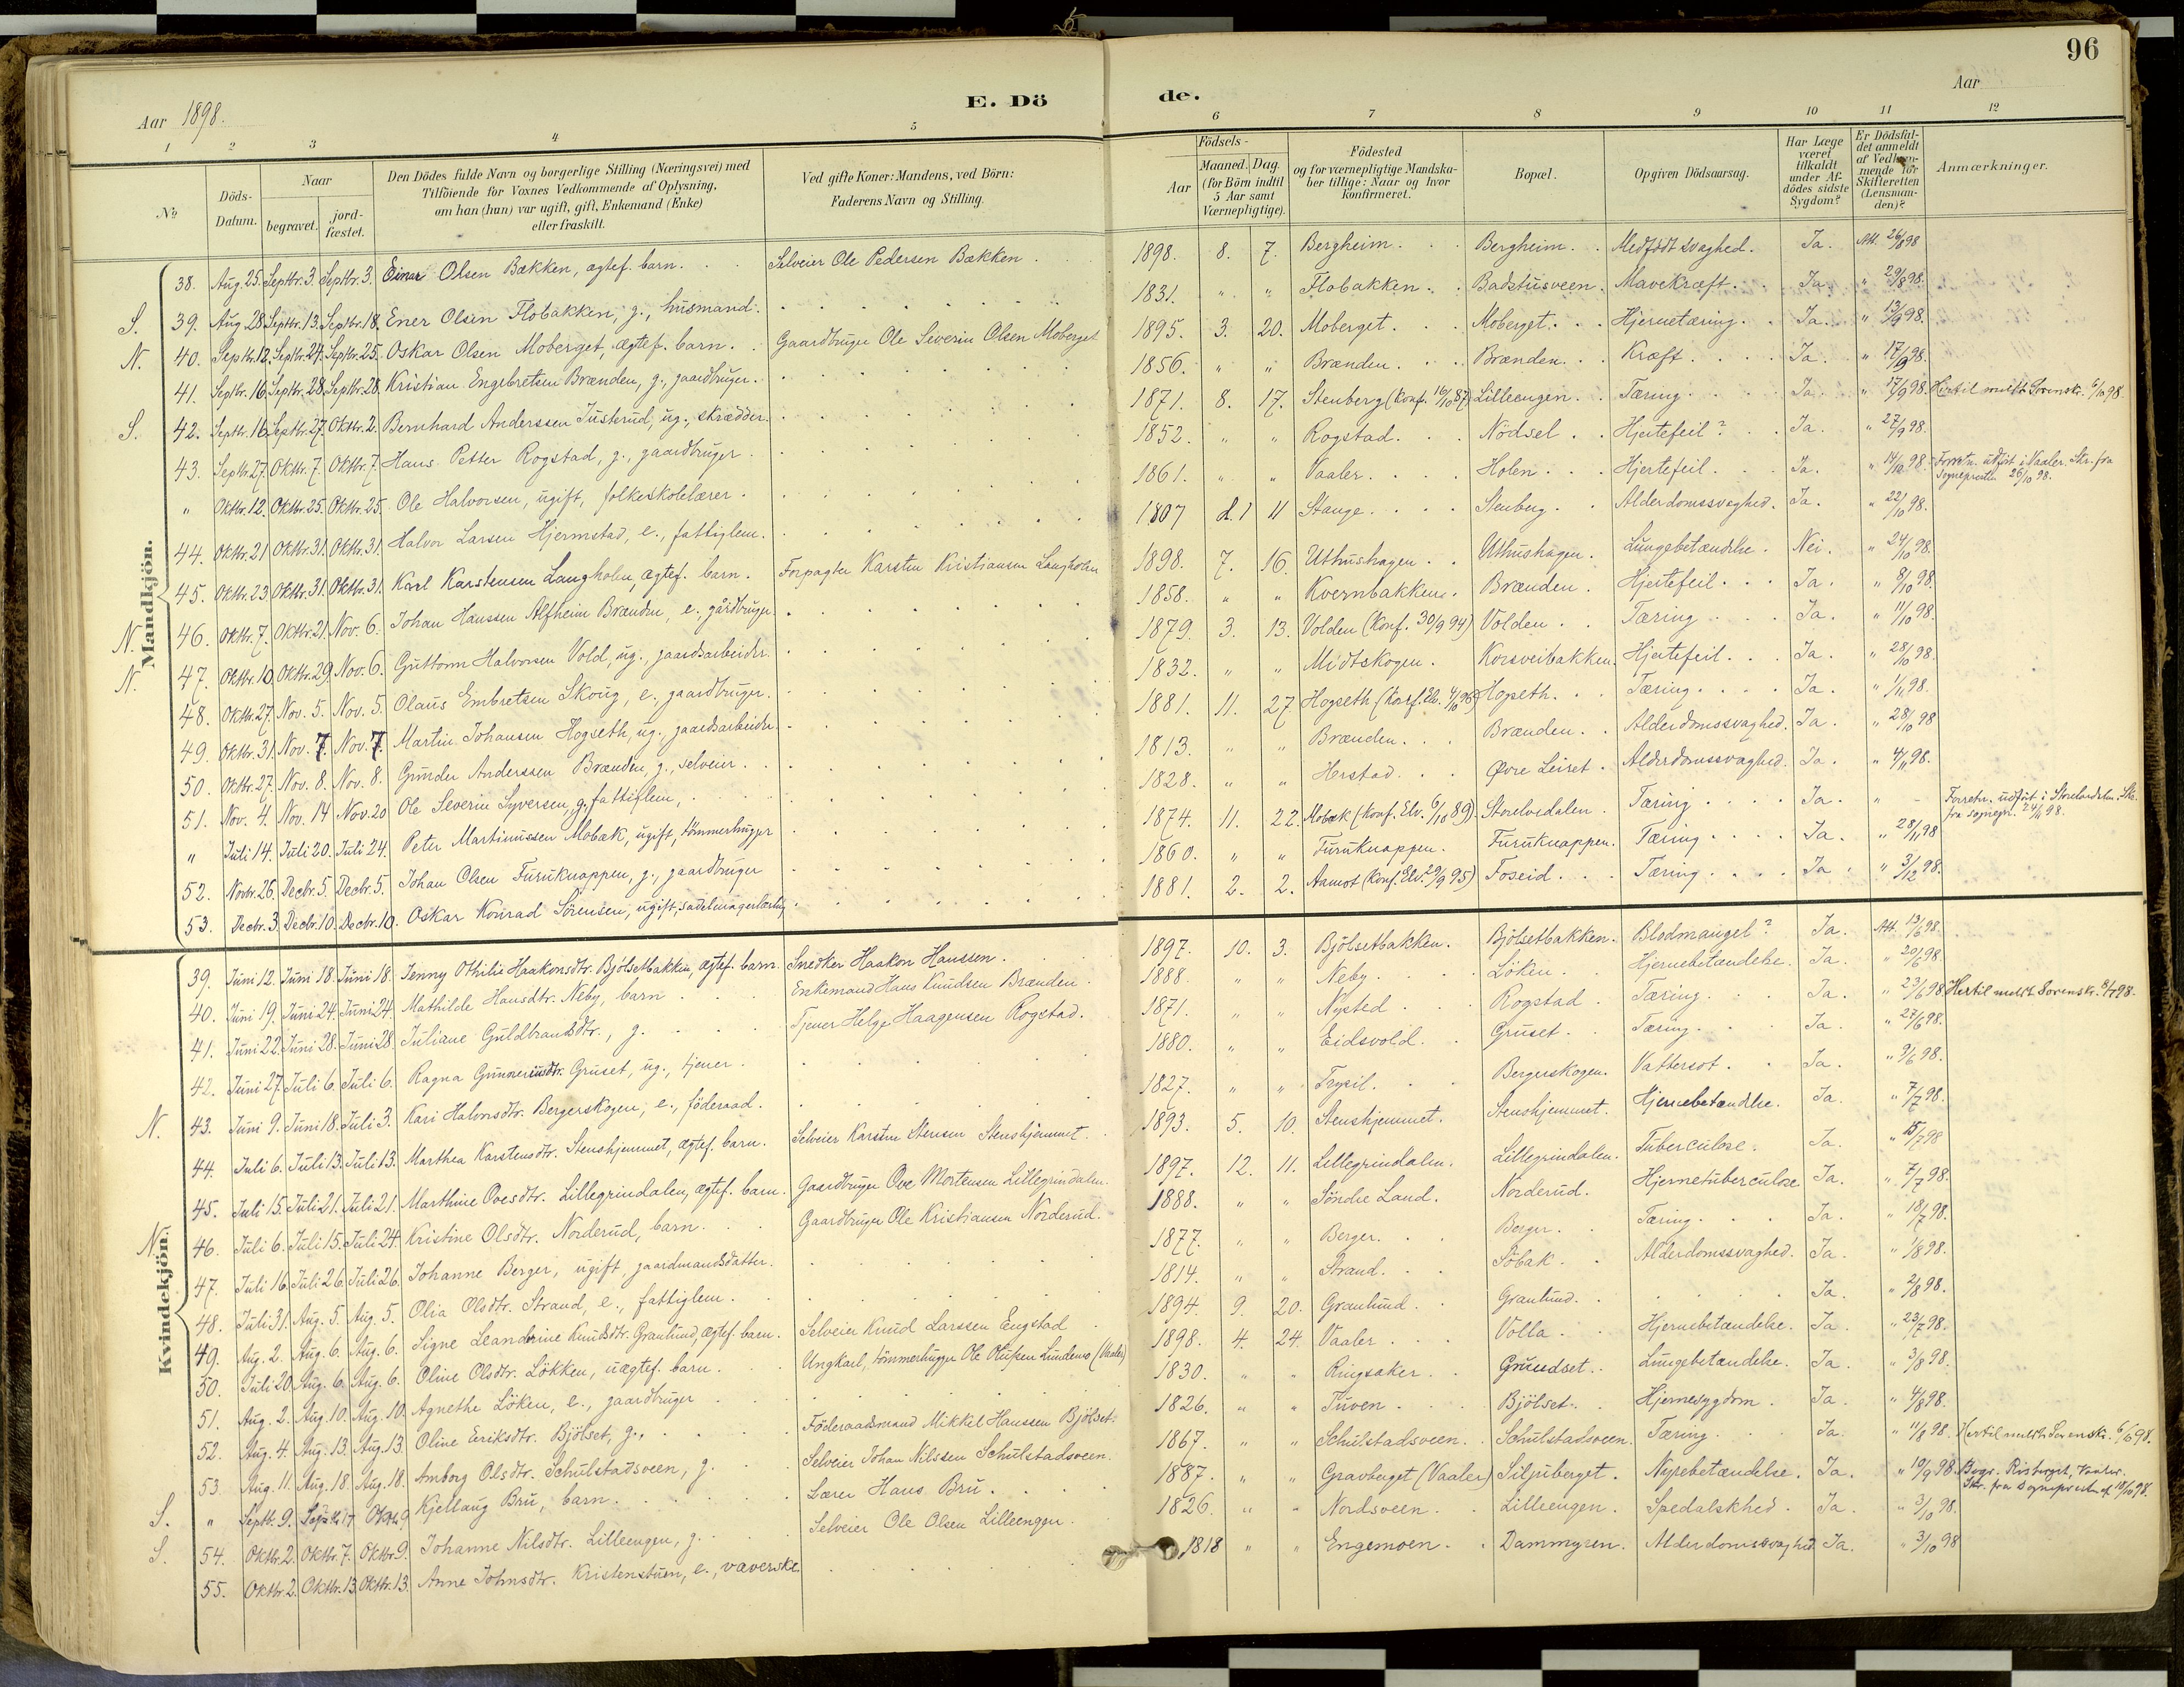 96
Aar 1898.
E. Dö
de.
Aar
1 2 3 4 5 6 7 8 9 10 11 12
№ | Döds-Datum. | Naar begravet. | jord-fæstet. | Den Dödes fulde Navn og borgerlige Stilling (Næringsvei) med Tilföiende for Voxnes Vedkommende af Oplysning, om han (hun) var ugift, gift, Enkemand (Enke) eller fraskilt. | Ved gifte Koner: Mandens, ved Börn: Faderens Navn og Stilling. | Födsels- Aar | Maaned. | Dag. (for Börn indtil 5 Aar samt Værnepligtige). | Födested og for værnepligtige Mandskaber tillige: Naar og hvor konfirmeret. | Bopæl. | Opgiven Dödsaarsag. | Har Læge været tilkaldt under Afdödes sidste Sygdom? | Er Dödsfaldet anmeldt af Vedkommende for Skifteretten (Lensmanden)? | Anmærkninger.
Mandkjön.
38. Aug. 25. Septbr. 3. Septbr. 3. Einar Olsen Bakken, ægtef. barn. Selveier Ole Pedersen Bakken. 1898. 8. 7. Bergheim. Bergheim. Medfödt svaghed. Ja. Att. 26/8 98
S. 39. Aug. 28 Septbr. 13. Septbr. 18. Ener Olsen Flobakken, g., husmand. 1831. " " Flobakken. Badstusveen. Mavekræft. Ja. " 29/8 98.
N. 40. Septbr. 12. Septbr. 24. Septbr. 25. Oskar Olsen Moberget, ægtef. barn. Gaardbruger Ole Severin Olsen Moberget 1895. 3. 20. Moberget. Moberget. Hjernetæring. Ja. " 13/9 98.
41. Septbr. 16. Septbr. 28. Septbr. 28. Kristian Engebretsen Brænden, g., gaardbruger. 1856. " " Brænden. Brænden. Kræft. Ja. " 17/9 98.
S. 42. Septbr. 16. Septbr. 27. Oktbr. 2. Bernhard Anderssen Justerud, ug., skrædder. 1871. 8. 17. Stenberg (Konf. 16/10 87) Lilleengen. Tæring. Ja. " 17/9 98. Hertil meldt Sorenskr. 6/10 98.
43. Septbr. 27. Oktbr. 7. Oktbr. 7. Hans Petter Rogstad, g., gaardbruger. 1852. " " Rogstad. Nödsel. Hjertefeil? Ja. " 27/9 98.
" Oktbr. 12. Oktbr. 25. Oktbr. 25. Ole Halvorsen, ugift, folkeskolelærer. 1861. " " Vaaler. Holen. Hjertefeil. Ja. " 14/10 98. Forretn. udført i Vaaler. Skr. fra Sogneprsten 26/10 98.
44. Oktbr. 21 Oktbr. 31. Oktbr. 31. Halvor Larsen Hjermstad, e., fattiglem. 1807 d. 1 11 Stange. Stenberg. Alderdomssvaghed. Ja. " 22/10 98.
45. Oktbr. 23. Oktbr. 31. Oktbr. 31. Karl Karstensen Langholen, ægtef. barn. Forpagter Karsten Kristiansen Langholen 1898. 7. 16. Uthushagen. Uthushagen. Lungebetændelse. Nei. " 24/10 98.
N. 46. Oktbr. 7. Oktbr. 21. Nov. 6. Johan Hanssen Alfheim Brænden, e., gårdbruger. 1858. " " Kvernbakken. Brænden. Hjertefeil. Ja. " 8/10 98.
N. 47. Oktbr. 10. Oktbr. 29. Nov. 6. Guttorm Halvorsen Vold, ug., gaardsarbeider. 1879. 3. 13. Volden (Konf. 30/9 94) Volden. Tæring. Ja. " 11/10 98.
48. Oktbr. 27. Nov. 5. Nov. 5. Olaus Embretsen Skoug, e., gaardbruger. 1832. " " Midtskogen. Korsveibakken. Hjertefeil. Ja. " 28/10 98.
49. Oktbr. 31. Nov. 7. Nov. 7. Martin Johansen Hogseth, ug., gaardsarbeider. 1881. 11. 27 Hogseth (Konf. Elv. 4/10 96) Hogseth. Tæring. Ja. " 1/11 98.
50. Oktbr. 27. Nov. 8. Nov. 8. Gunder Anderssen Brænden, g., selveier. 1813. " " Brænden. Brænden. Alderdomssvaghed. Ja. " 28/10 98
51. Nov. 4. Nov. 14 Nov. 20 Ole Severin Syversen, g., fattiglem, 1828. " " Herstad. Øvre Leiret. Alderdomssvaghed. Ja. " 4/11 98.
" Juli 14. Juli 20. Juli 24. Peter Martinussen Mobæk, ugift, tömmerhugger 1874. 11. 22. Mobæk (Konf. Elv. 6/10 89). Storelvedalen. Tæring. Ja. " - Forretn. udført i Storelvedalen. Skr. fra sognepr. 24/11 98.
52. Novbr. 26. Decbr. 5. Decbr. 5. Johan Olsen Furuknappen, g., gaardbruger 1860. " " Furuknappen. Furuknappen. Tæring. Ja. " 28/11 98
53. Decbr. 3. Decbr. 10. Decbr. 10. Oskar Konrad Sörensen, ugift, sadelmagerlærling 1881. 2. 2. Aamot (Konf. Elv. 29/9 95) Foseid. Tæring. Ja. " 3/12 98.
Kvindekjön.
39. Juni 12. Juni 18. Juni 18. Jenny Othilie Haakonsdtr. Bjölsetbakken, ægtef. barn. Snedker Haakon Hanssen. 1897. 10. 3. Bjölsetbakken. Bjölsetbakken. Blodmangel? Ja. Att. 13/6 98.
40. Juni 19. Juni 24. Juni 24. Mathilde Hansdtr. Neby, barn. Enkemand Hans Knudsen Brænden. 1888. " " Neby. Löken. Hjernebetændelse. Ja. " 20/6 98.
41. Juni 22. Juni 28. Juni 28. Juliane Guldbrandsdtr., g. Tjener Helge Haagensen Rogstad. 1871. " " Nysted. Rogstad. Tæring. Ja. " 23/6 98 Hertil meldt Sorenskr. 8/7 98.
42. Juni 27. Juli 6. Juli 6. Ragna Gunneriusdtr. Gruset, ug., tjener. 1880. " " Eidsvold. Gruset. Tæring. Ja. " 27/6 98.
N. 43. Juni 9. Juni 18. Juli 3. Kari Halvorsdtr. Bergerskogen, e., föderaad. 1827. " " Trysil. Bergerskogen. Vattersot. Ja. " 9/6 98.
44. Juli 6. Juli 13. Juli 13. Marthea Karstensdtr. Stenshjemmet, ægtef. barn. Selveier Karsten Stensen Stenshjemmet. 1893. 5. 10. Stenshjemmet. Stenshjemmet. Hjernebetændelse. Ja. " 7/7 98.
45. Juli 15. Juli 21. Juli 21. Marthine Ovesdtr. Lillegrindalen, ægtef. barn. Gaardbruger Ove Mortensen Lillegrindalen. 1897. 12. 11. Lillegrindalen. Lillegrindalen. Tuberculose. Ja. " 15/7 98
N. 46. Juli 6. Juli 15. Juli 24. Kristine Olsdtr. Norderud, barn. Gaardbruger Ole Kristiansen Norderud. 1888. " " Söndre Land. Norderud. Hjernetuberculose Ja. " 7/7 98.
47. Juli 16. Juli 26. Juli 26. Johanne Berger, ugift, gaardmandsdatter. 1877. " " Berger. Berger. Tæring. Ja. " 18/7 98.
48. Juli 31. Aug. 5. Aug. 5. Olia Olsdtr. Strand, e., fattiglem. 1814. " " Strand. Söbak. Alderdomssvaghed. Ja. " 1/8 98.
49. Aug. 2. Aug. 6. Aug. 6. Signe Leandrine Knudsdtr. Granlund, ægtef. barn. Selveier Knud Larssen Engstad 1894. 9. 20. Granlund. Granlund. Ja. " 2/8 98.
50. Juli 20. Aug. 6. Aug. 6. Oline Olsdtr. Lökken, uægtef. barn. Ungkarl, tömmerhugger Ole Olufsen Lundemo (Vaaler) 1898. 4. 24. Vaaler. Volla. Hjernebetændelse. Ja. " 23/7 98.
51. Aug. 2. Aug. 10. Aug. 10. Agnethe Löken, e., gaardbruger 1830. " " Ringsaker. Grundset. Lungebetændelse. Ja. " 3/8 98.
52. Aug. 4. Aug. 13. Aug. 13. Oline Eriksdtr. Bjölset, g., Föderaadsmand Mikkel Hanssen Bjölset. 1826. " " Tuven. Bjölset. Hjernesygdom. Ja. " 4/8 98.
53. Aug. 11. Aug. 18. Aug. 18. Amborg Olsdtr. Schulstadsveen, g. Selveier Johan Nilssen Schulstadsveen. 1867. " " Schulstadsveen. Schulstadsveen. Tæring. Ja. " 11/8 98. Hertil meldt Sorenskr. 6/6 98.
S. " Septbr. 9. Septbr. 17 Oktbr. 9 Kjellaug Bru, barn. Lærer Hans Bru. 1887. " " Gravberget (Vaaler) Siljuberget. Nyrebetændelse. Ja. " 10/9 98. Begr. Risberget, Vaaler. Skr. fra Sognepresten af 18/10 98.
S. 54. Oktbr. 2. Oktbr. 7. Oktbr. 9. Johanne Nilsdtr. Lilleengen, g. Selveier Ole Olsen Lilleengen. 1826. " " Nordsveen. Lilleengen. Spedalskhed. Ja. " 3/10 98.
55. Oktbr. 2. Oktbr. 13. Oktbr. 13. Anne Johnsdtr. Kristenstuen, e., væverske. 1818 " " Engemoen. Dammyren. Alderdomssvaghed Ja. " 3/10 98